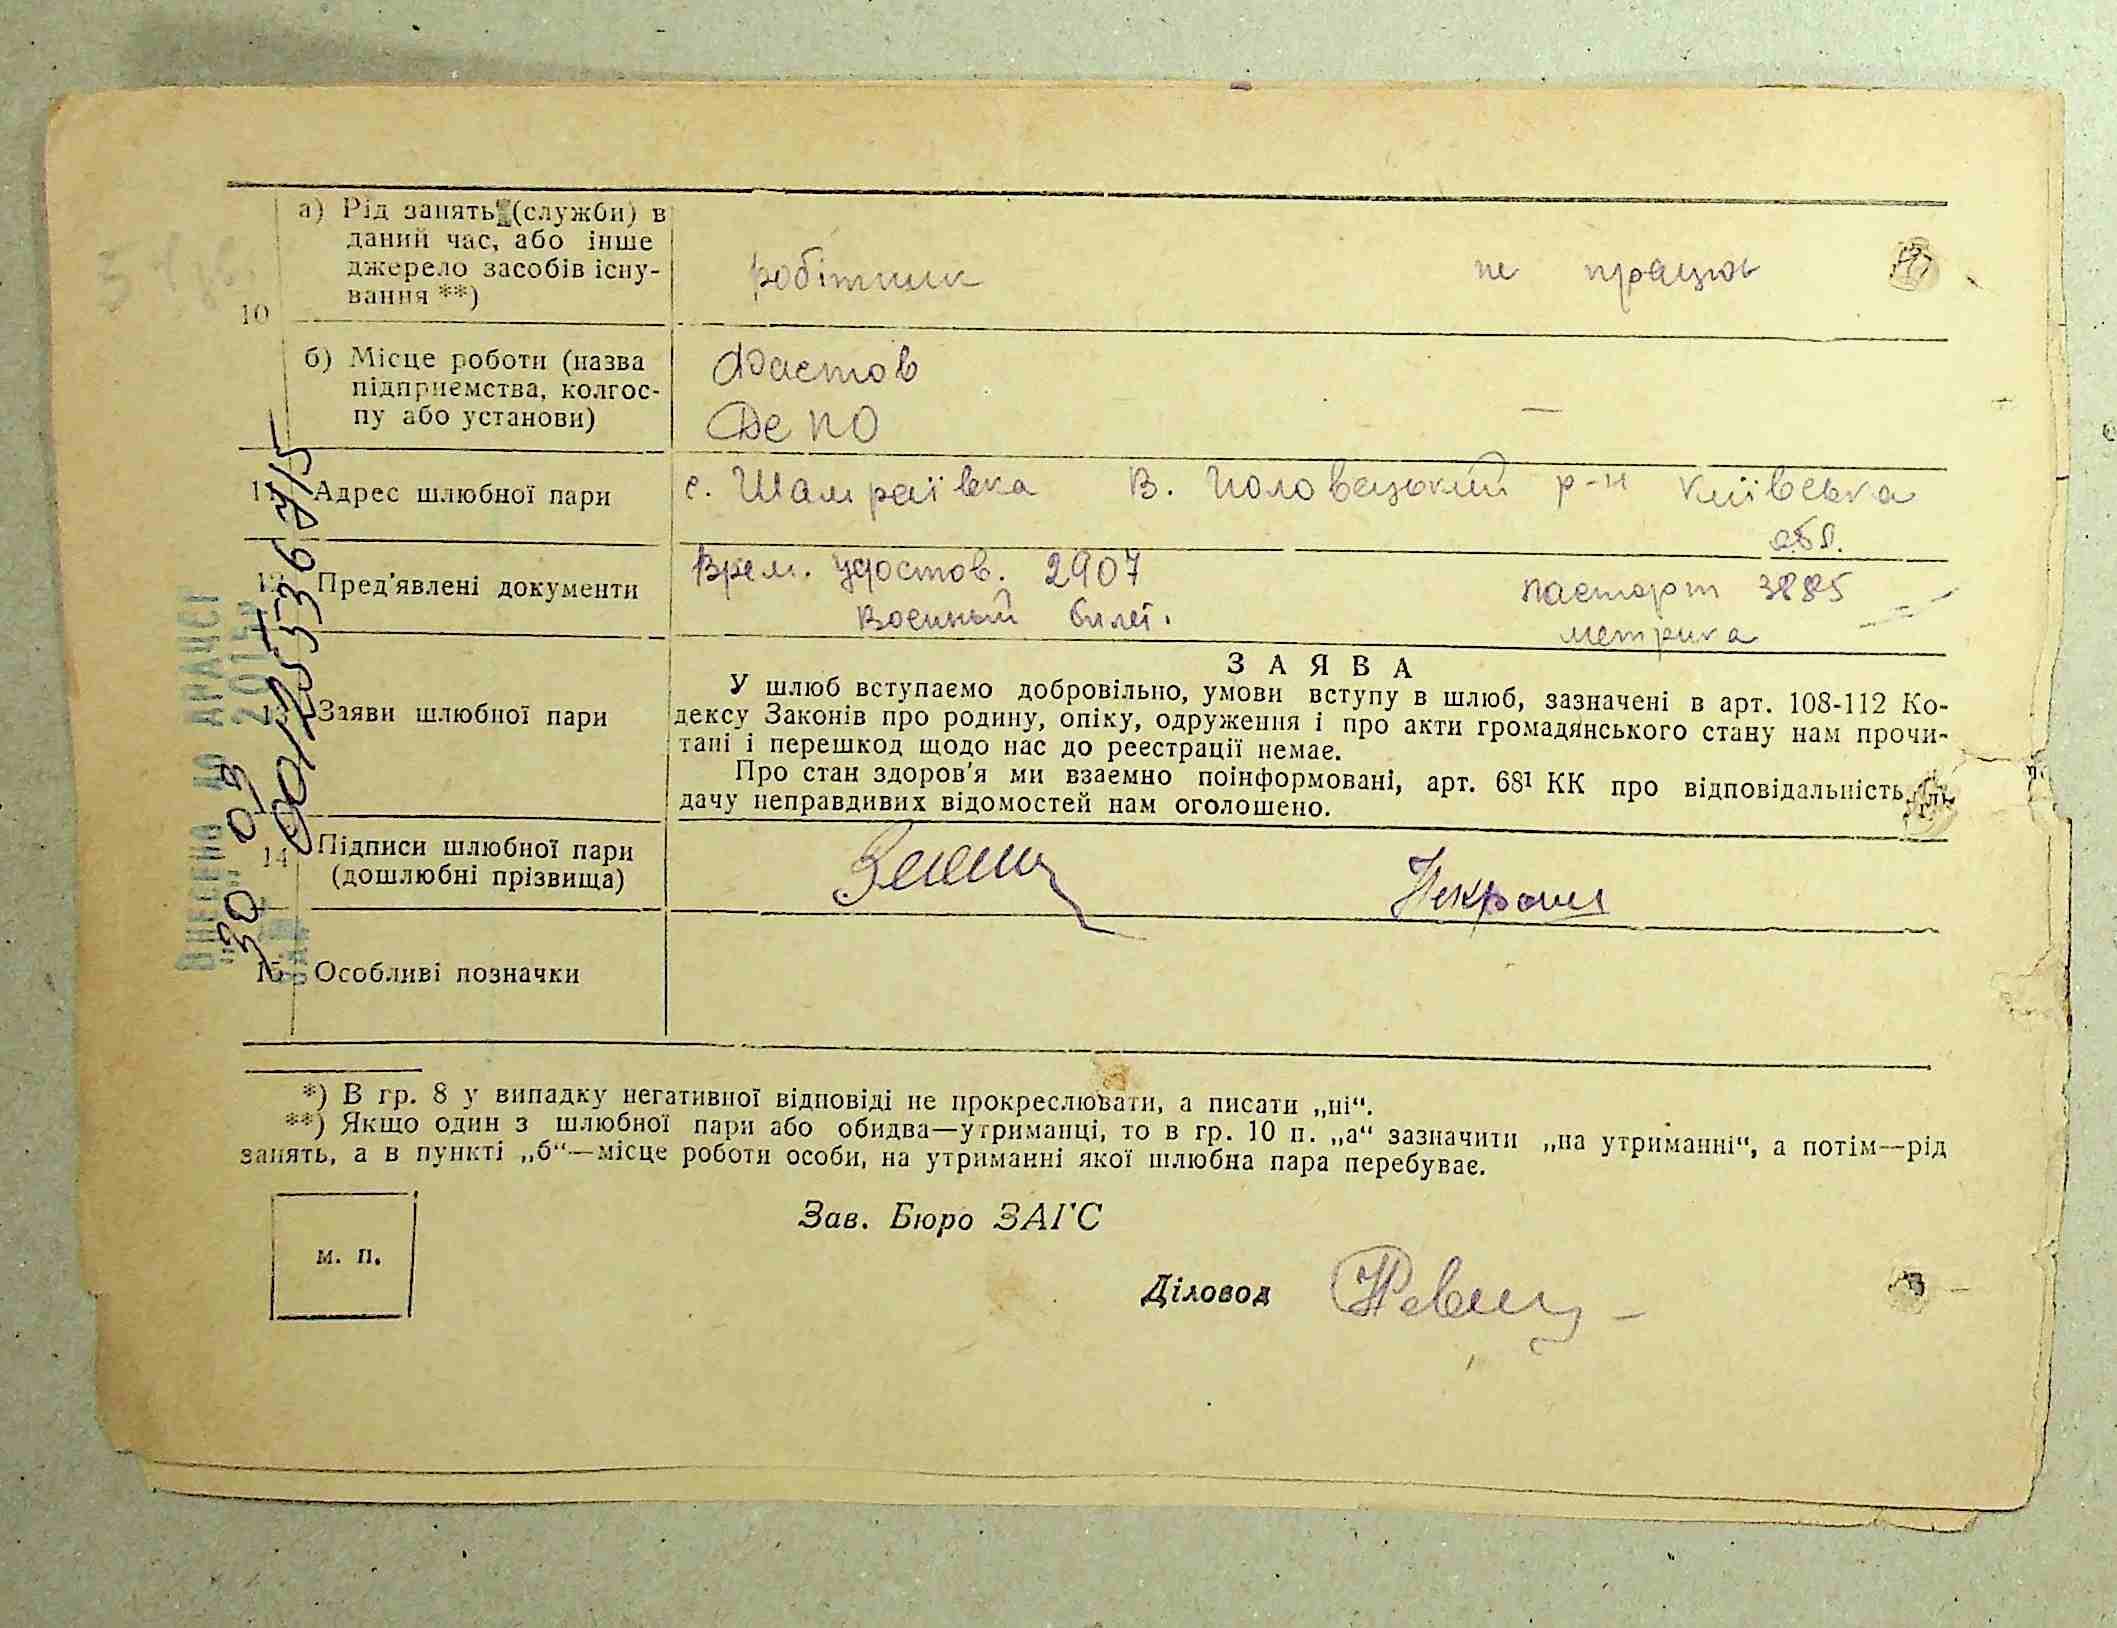 а) Рід занять (служби) в
даний час, або інше
джерело засобів існу-
вання **)
10
робітник
не працює
б) Місце роботи (назва
підприємства, колгос-
пу або установи)
Фастов
Депо
—
11
Адрес шлюбної пари
с. Шамраївка В. Половецький р-н Київська
обл.
12
Пред'явлені документи
Врем. удостов. 2907
Военный билет.
паспорт 3885
метрика
13
Заяви шлюбної пари
ЗАЯВА
У шлюб вступаємо добровільно, умови вступу в шлюб, зазначені в арт. 108-112 Ко-
дексу Законів про родину, опіку, одруження і про акти громадянського стану нам прочи-
тані і перешкод щодо нас до реєстрації немає.
Про стан здоров'я ми взаємно поінформовані, арт. 68¹ КК про відповідальність
дачу неправдивих відомостей нам оголошено.
14
Підписи шлюбної пари
(дошлюбні прізвища)
15
Особливі позначки
*) В гр. 8 у випадку негативної відповіді не прокреслювати, а писати „ні“.
**) Якщо один з шлюбної пари або обидва—утриманці, то в гр. 10 п. „а“ зазначити „на утриманні“, а потім—рід
занять, а в пункті „б“—місце роботи особи, на утриманні якої шлюбна пара перебуває.
м. п.
Зав. Бюро ЗАГС
Діловод
ВНЕСЕНО ДО ДРАЦСГ
30 03 201
00125536715